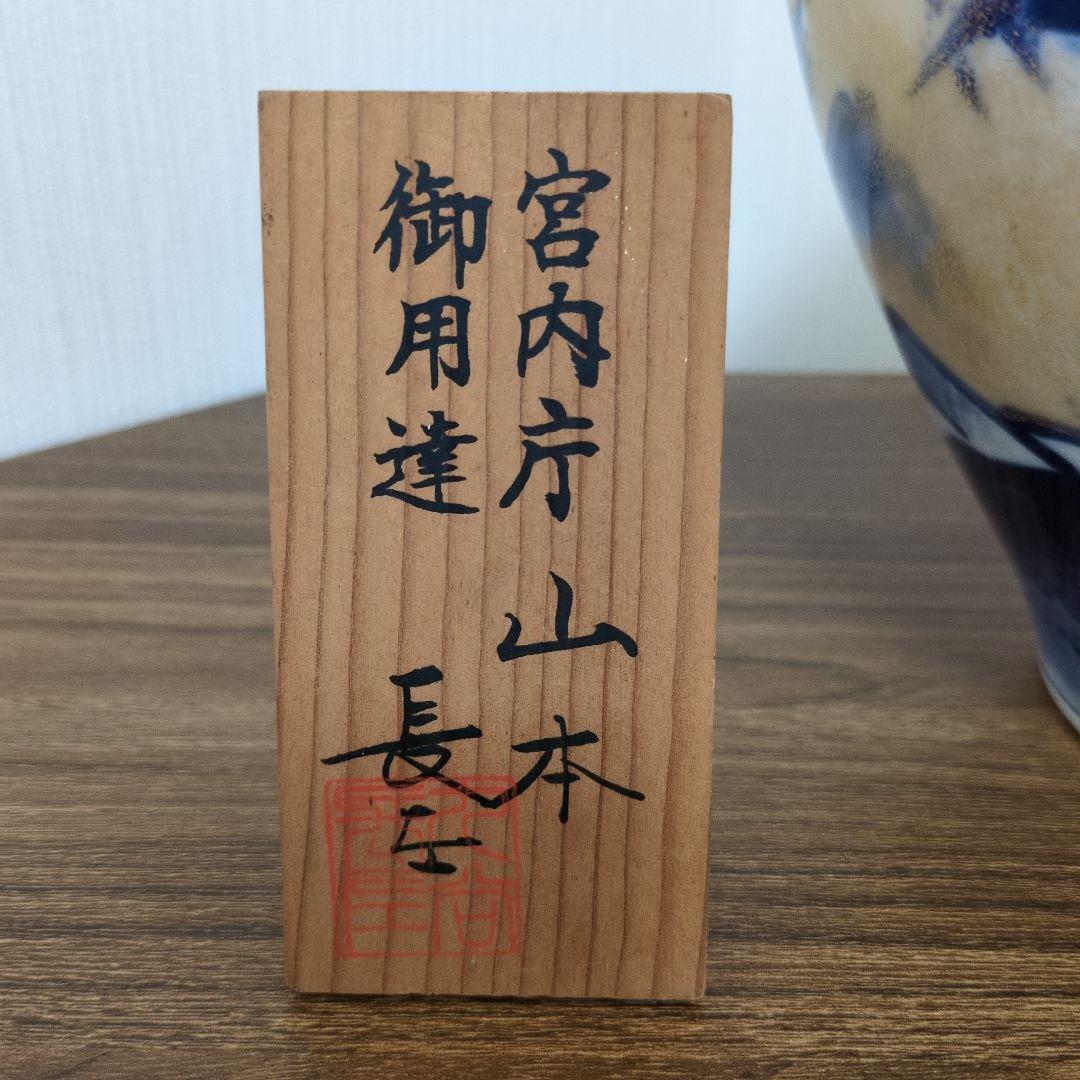 宮内庁
御用達
山本
長左